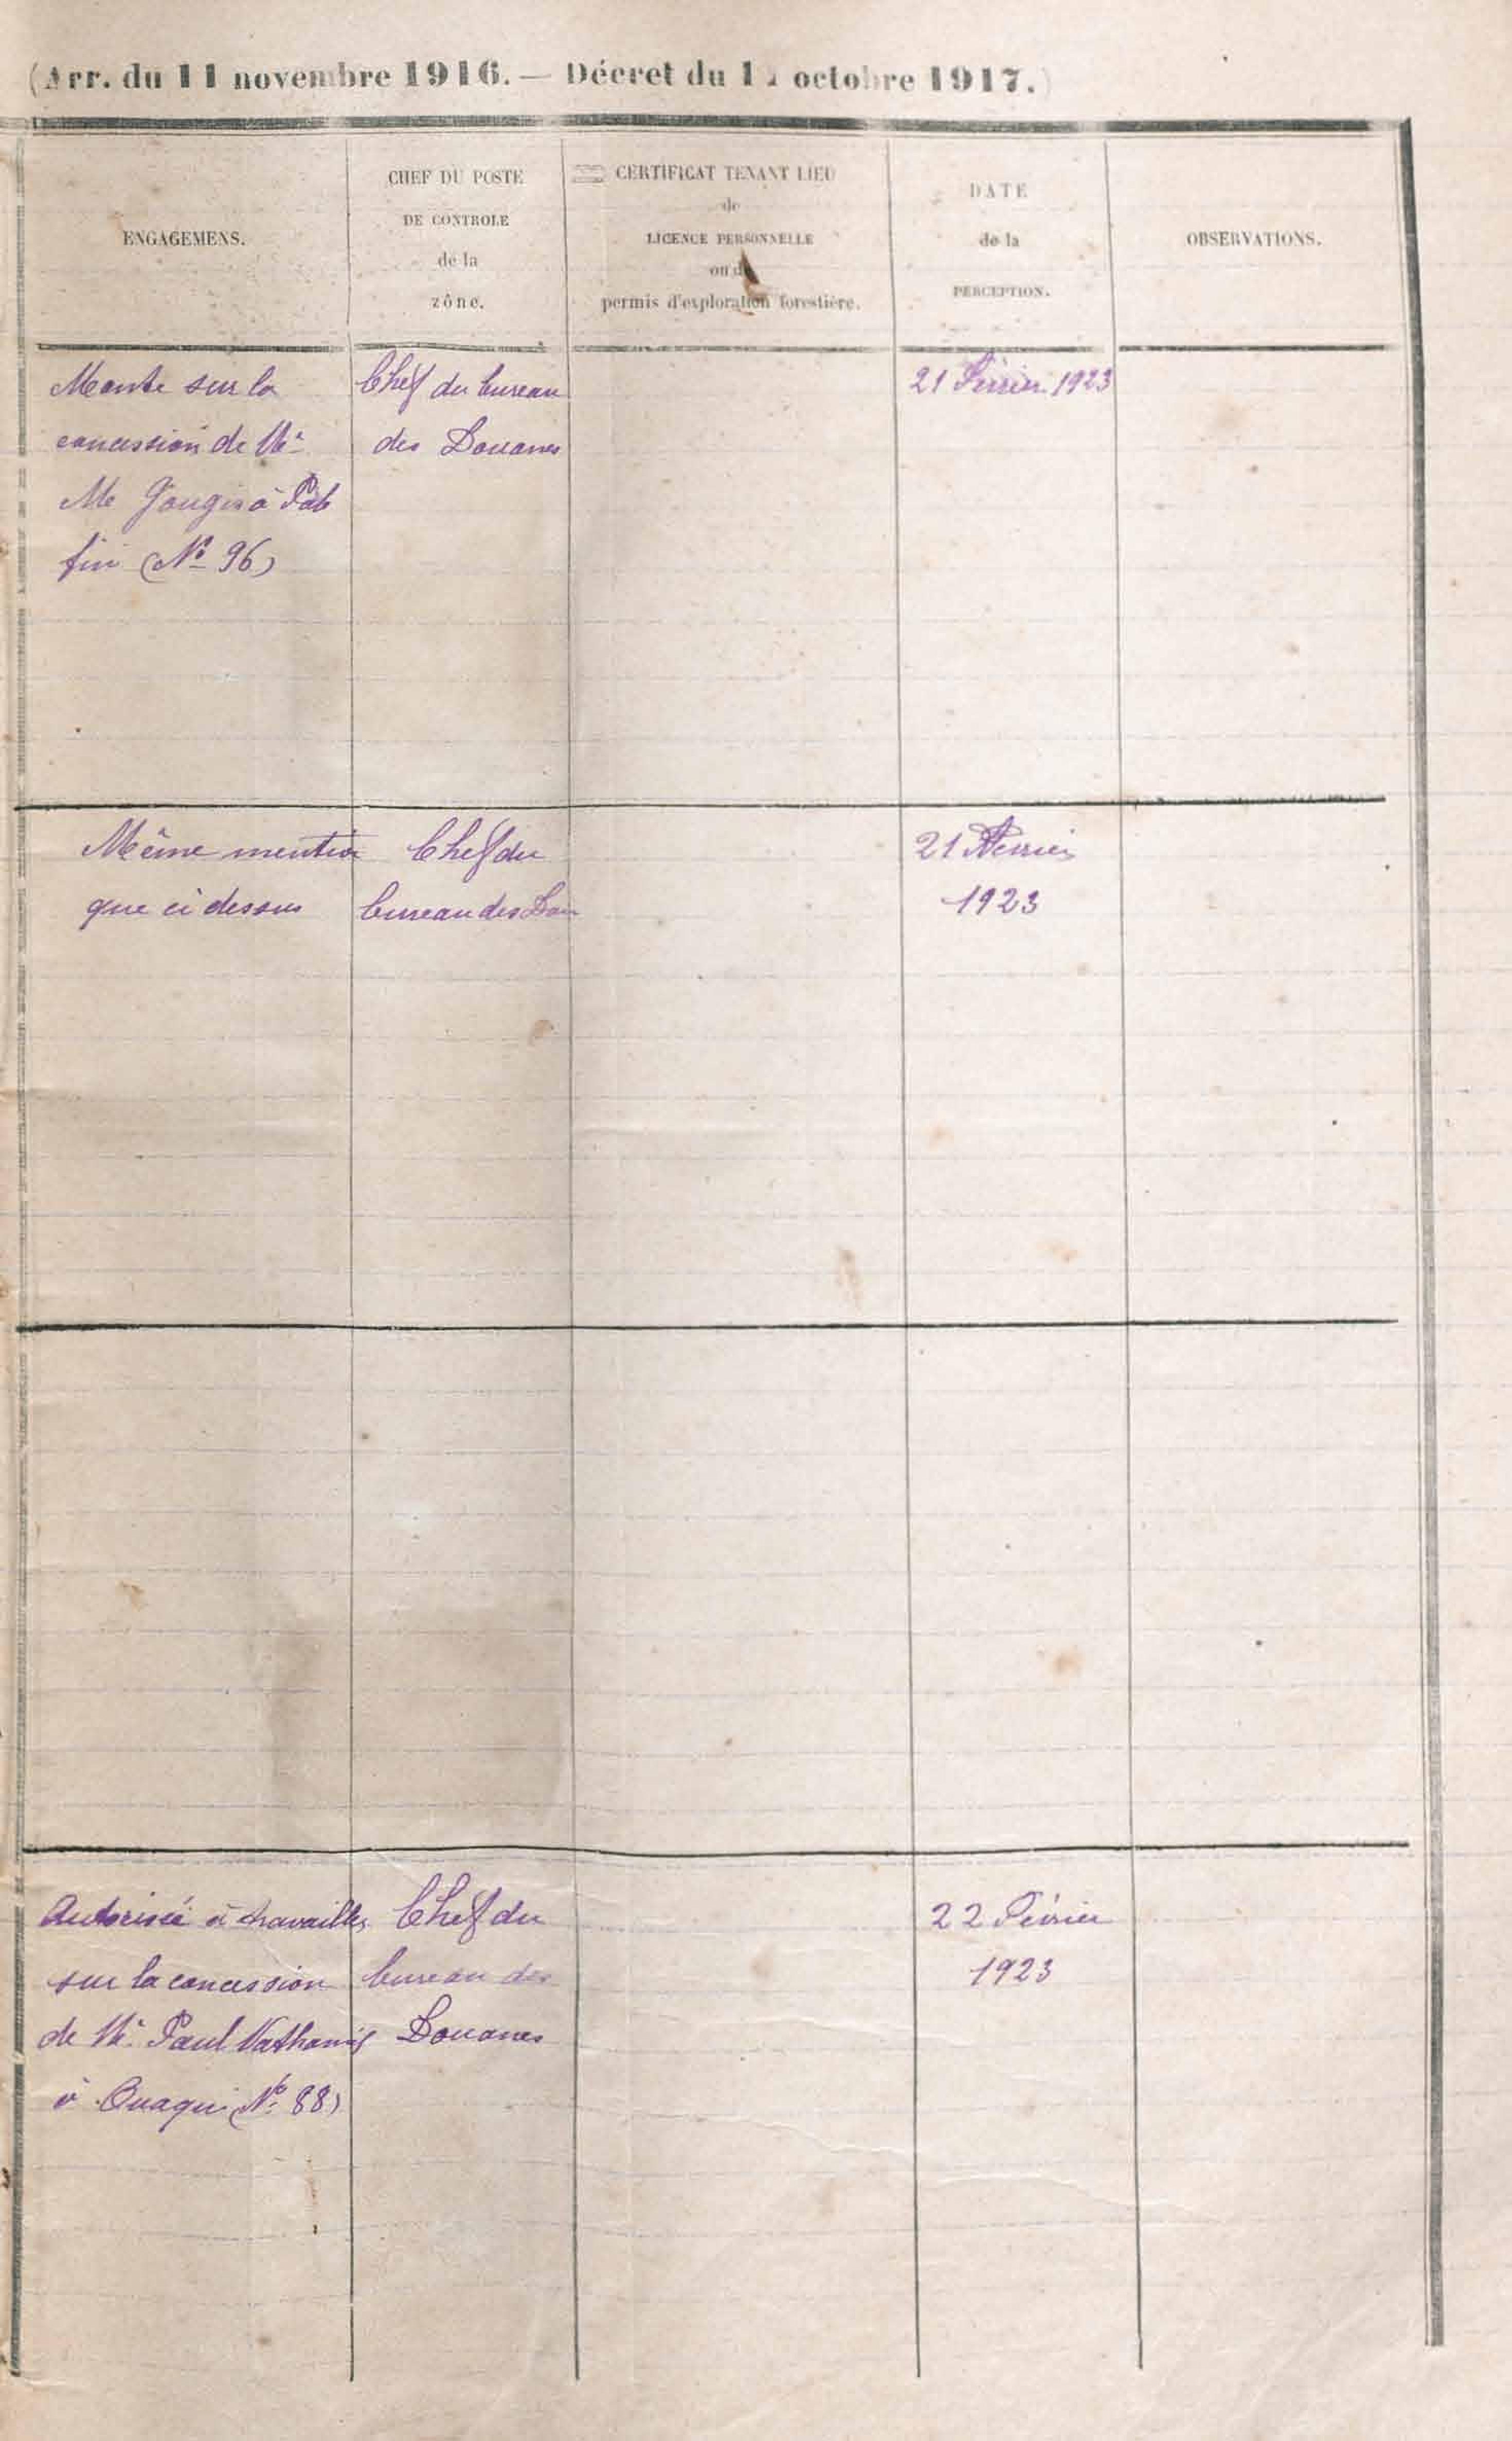 (Arr. du 11 novembre 1916. — Décret du 1 octobre 1917.)
ENGAGEMENS.
CHEF DU POSTE
DE CONTROLE
de la
zône.
CERTIFICAT TENANT LIEU
de
LICENCE PERSONNELLE
ou de
permis d'exploration forestière.
DATE
de la
PERCEPTION.
OBSERVATIONS.
Monte sur la
concession de
à
fin (No 96)
Chef du bureau
des Douanes
21 Février 1923
Même mention
que ci dessus
Chef du
bureau des Dou
21 Février
1923
Autorisée à travailler
sur la concession
de Paul
à Ouaqui (No 88)
Chef du
bureau des
Douanes
22 Février
1923